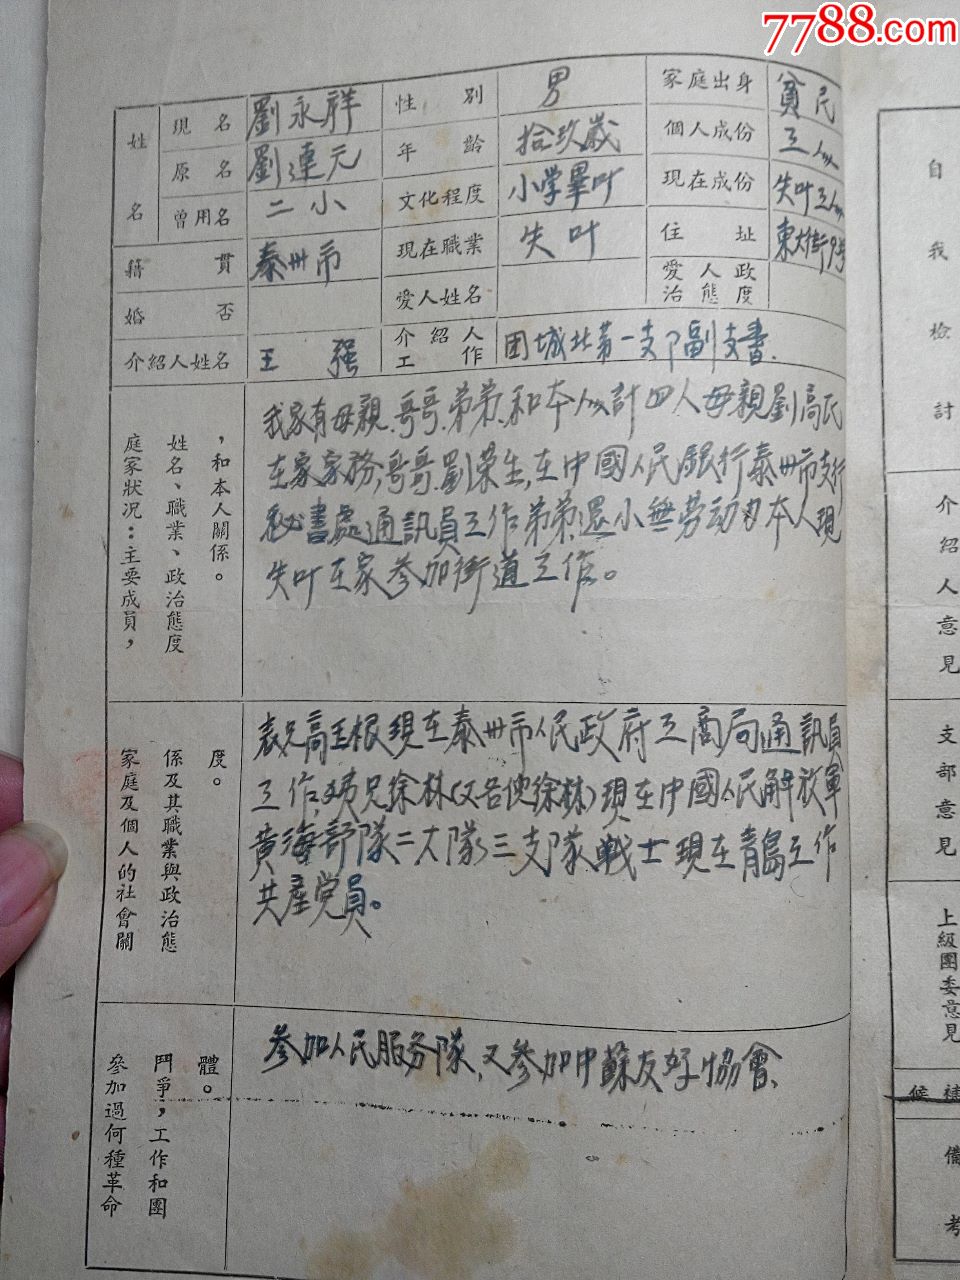 7788.com
姓名 現名 劉永祥 性別 男 家庭出身 貧民
原名 劉連元 年齡 拾玖歲 個人成份 工人
曾用名 二小 文化程度 小学畢叶 現在成份 失叶工人
籍貫 泰州市 現在職業 失叶 住址 東大街9号
婚否 愛人姓名 愛人政治態度
介紹人姓名 王强 介紹人工作 团城北第一支卩副支書.
庭家狀况：主要成員，
姓名、職業、政治態度
，和本人關係。
我家有母親.哥哥.弟弟.和本人共計四人母親劉高氏
在家家務,哥哥.劉榮生,在中國人民銀行泰州市支行
秘書處通訊員工作弟弟.還小無劳动力本人現
失叶在家参加街道工作。
家庭及個人的社會關
係及其職業與政治態
度。
表兄高玉根現在泰州市人民政府工商局通訊員
工作,表兄徐林(又名徐林)現在中國人民解放軍
黄海部隊二大隊三支隊戰士現在青島工作
共産党員。
參加過何種革命
鬥爭，工作和團
體。
参加人民服务隊,又参加中蘇友好協會、
自我檢討
介紹人意見
支部意見
上級團委意見
候補
備考